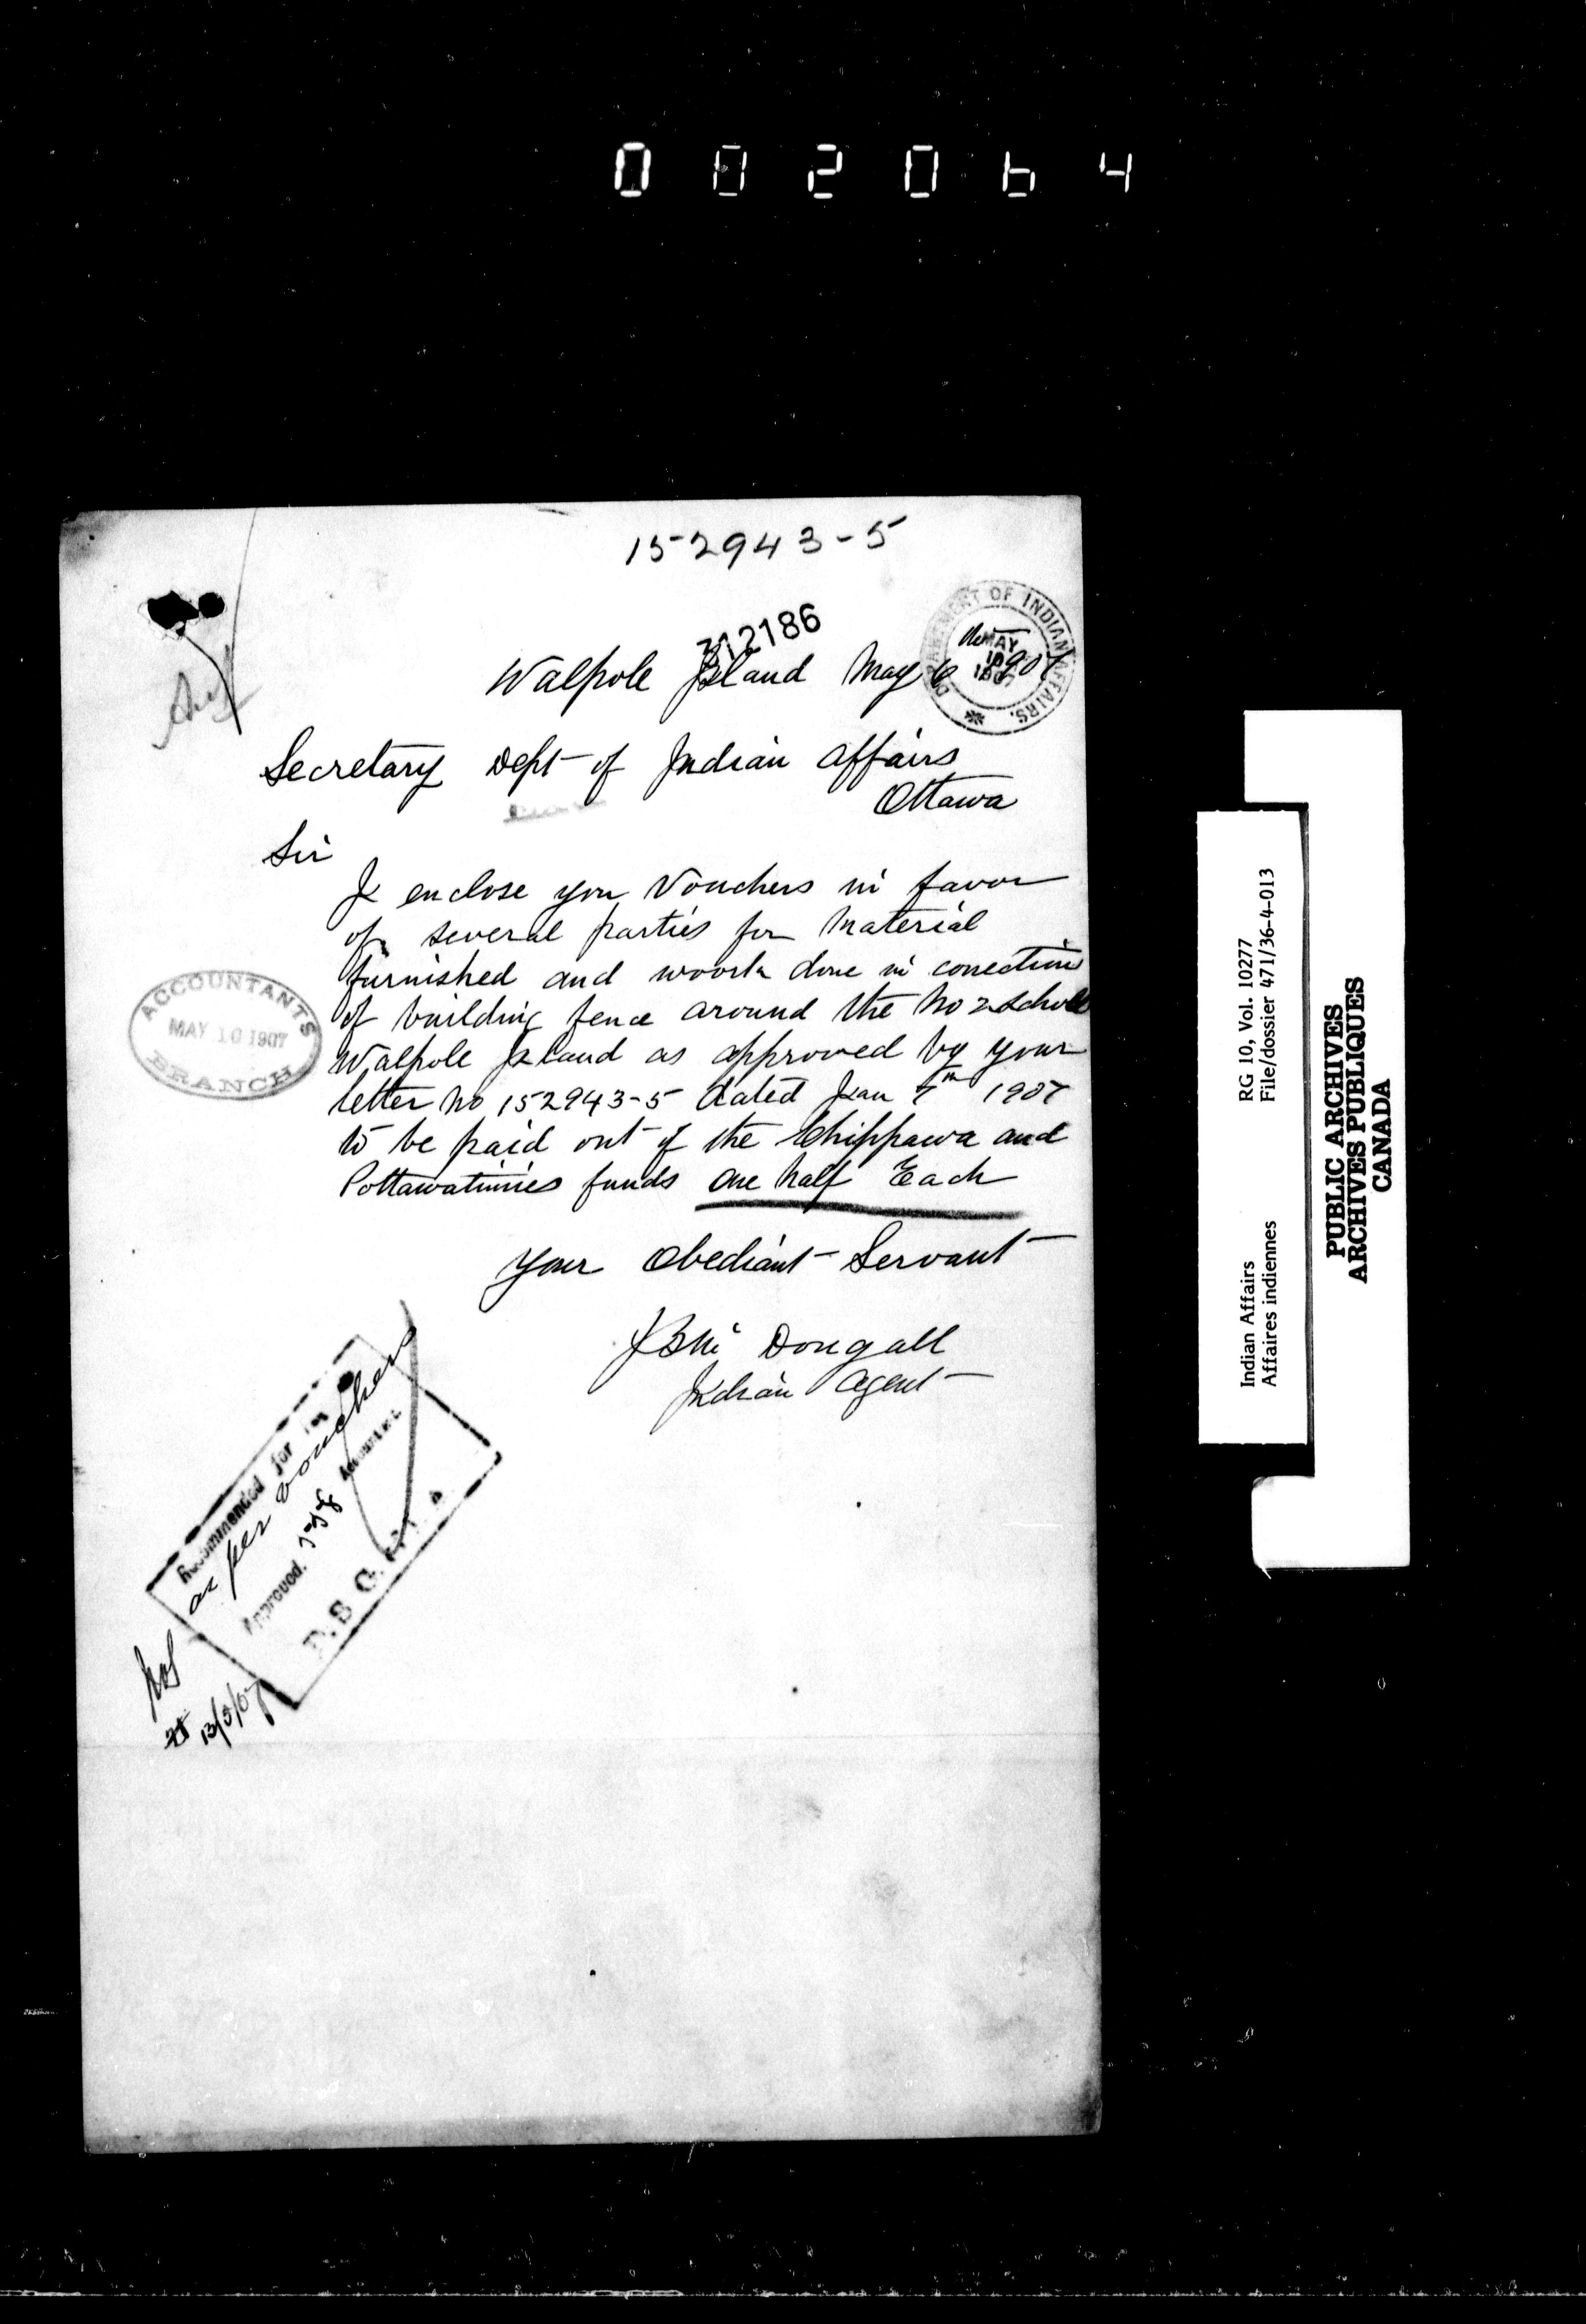 002064
152943-5
312186
DEPARTMENT OF INDIAN AFFAIRS.
MAY 10 1907
Walpole Island May 6 1907
Secretary Dept of Indian Affairs
Ottawa
Sir
I enclose you Vouchers in favor
of several parties for Material
furnished and woork done in conection
of building fence around the No 2 School
Walpole Island as approved by your
letter No 152943-5 dated Jan 7th 1907
to be paid out of the Chippawa and
Pottawatimies funds one half Each
ACCOUNTANTS
MAY 10 1907
BRANCH
your Obediant Servant
J B Mc Dougall
Indian Agent
Recommended for
as per vouchers
Approved.
Accountant
D. S. G.
13/5/07
Indian Affairs
Affaires indiennes
RG 10, Vol. 10277
File/dossier 471/36-4-013
PUBLIC ARCHIVES
ARCHIVES PUBLIQUES
CANADA